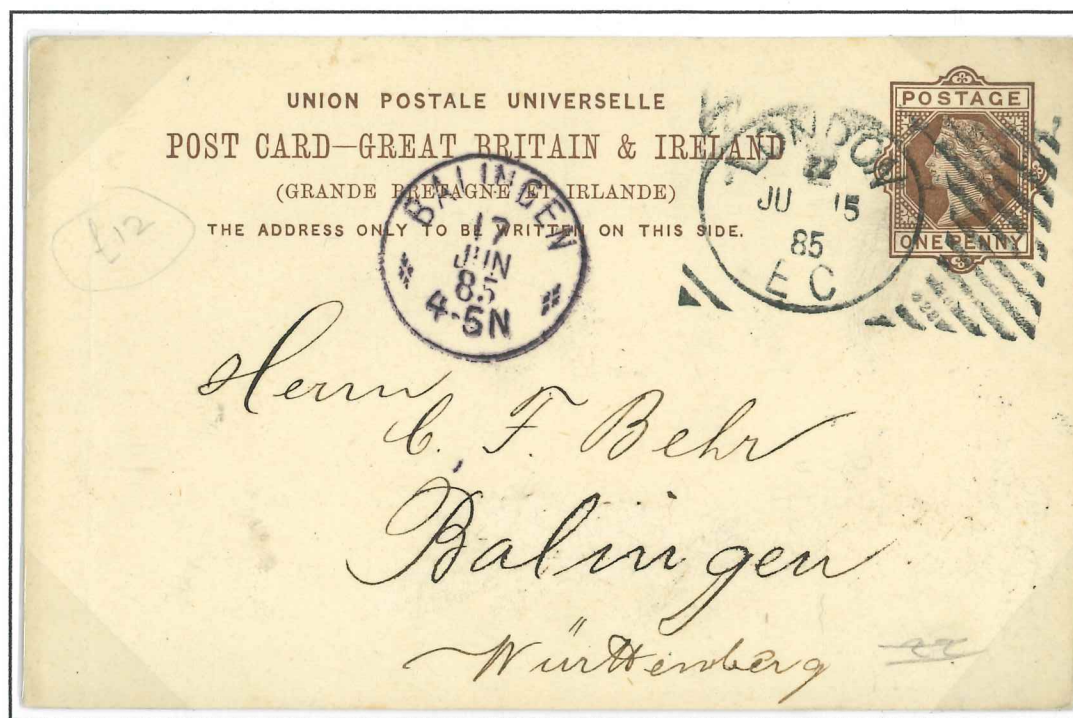 UNION POSTALE UNIVERSELLE
POST CARD—GREAT BRITAIN & IRELAND
(GRANDE BRETAGNE ET IRLANDE)
THE ADDRESS ONLY TO BE WRITTEN ON THIS SIDE.
POSTAGE
ONE PENNY
LONDON
22
JU 15
85
E C
BALINGEN
17
JUN
85
4-5N
£12
Herrn
C. F. Behr
Balingen
Württemberg